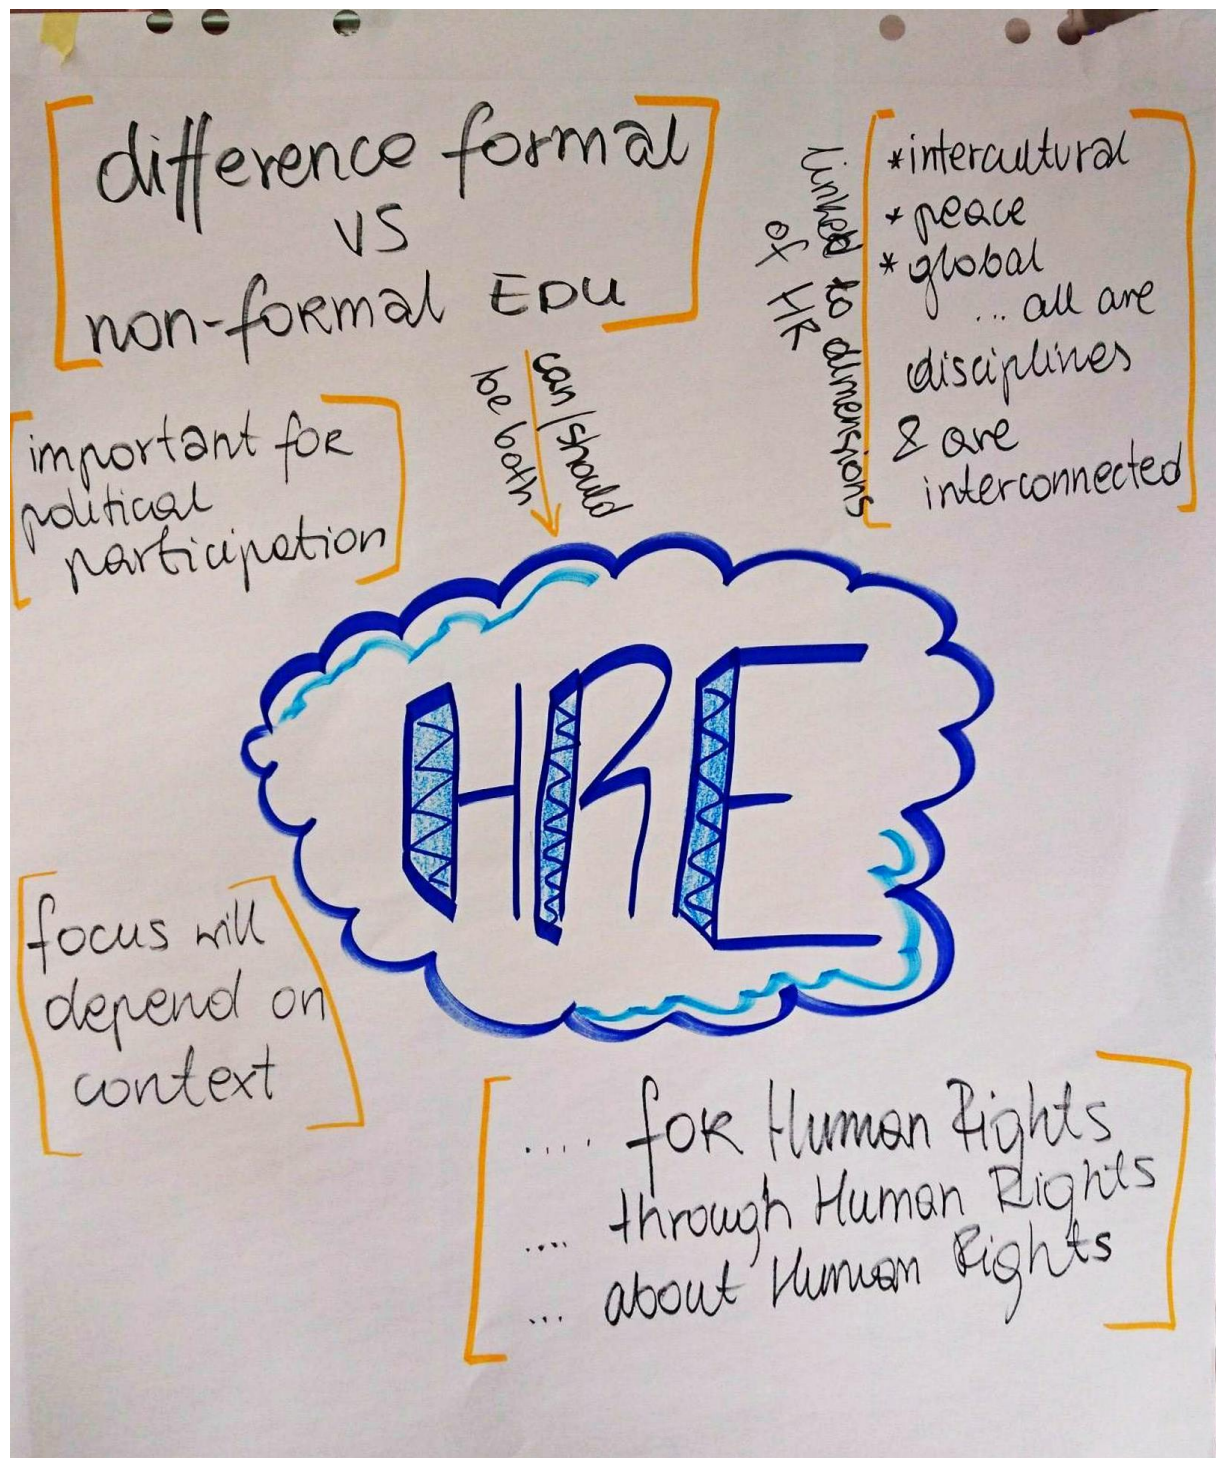 difference formal
vs
non-formal EDU
can/should
be both
linked to dimensions
of HR
*intercultural
*peace
*global
... all are
disciplines
& are
interconnected
important for
political
participation
HRE
focus will
depend on
context
.... for Human Rights
.... through Human Rights
... about Human Rights